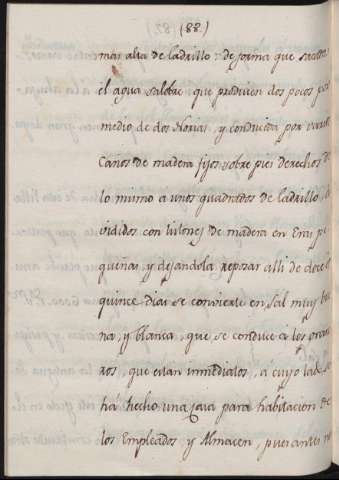 (88.)
más alta de ladrillo: de forma que
el agua salobre que producen dos pocos por
medio de dos Norias, y conducida por varios
Caños de madera fijos sobre pies derechos de
lo mismo a unos quadrados de ladrillo, di
vididos con listones de madera en Eras pe
queñas, y dejandola reposar alli de doce a
quince dias se convierte en sal muy bue
na, y blanca, que se conduce á los grane
ros, que estan inmediatos, a cuyo lado se
há hecho una casa para habitacion de
los Empleados y Almacen, pues antes no